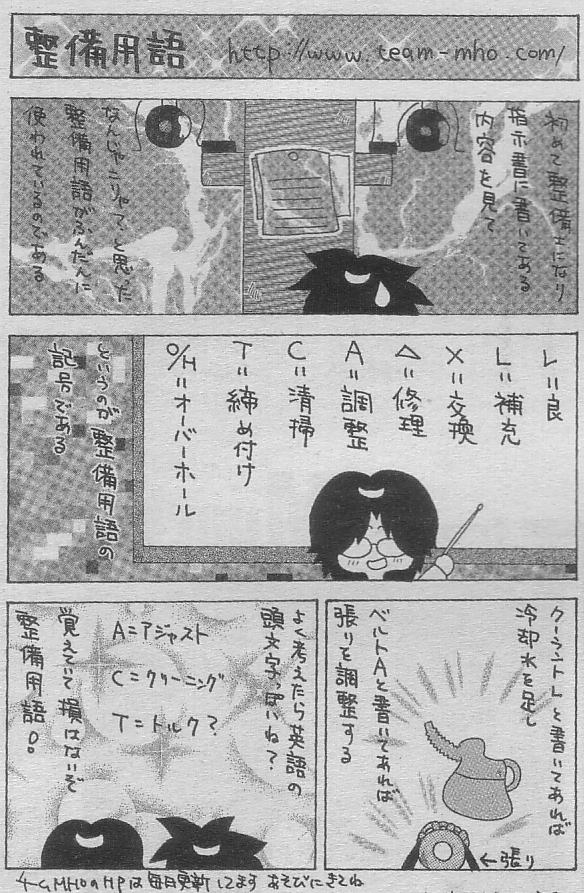 整備用語 http://www.team-mho.com/
初めて整備士になり
指示書に書いてある
内容を見て
なんじゃこりゃて゛と思った
整備用語がふんだんに
使われているのである
レ=良
L=補充
X=交換
△=修理
A=調整
C=清掃
T=締め付け
O/H=オーバーホール
というのが整備用語の
記号である
クーラントLと書いてあれば
冷却水を足し
ベルトAと書いてあれば
張りを調整する
←張り
よく考えたら英語の
頭文字っぽいね?
A=アジャスト
C=クリーニング
T=トルク?
覚えていて損はないぞ
整備用語。
チームMHOのHPは毎日更新してます あそびにきてね